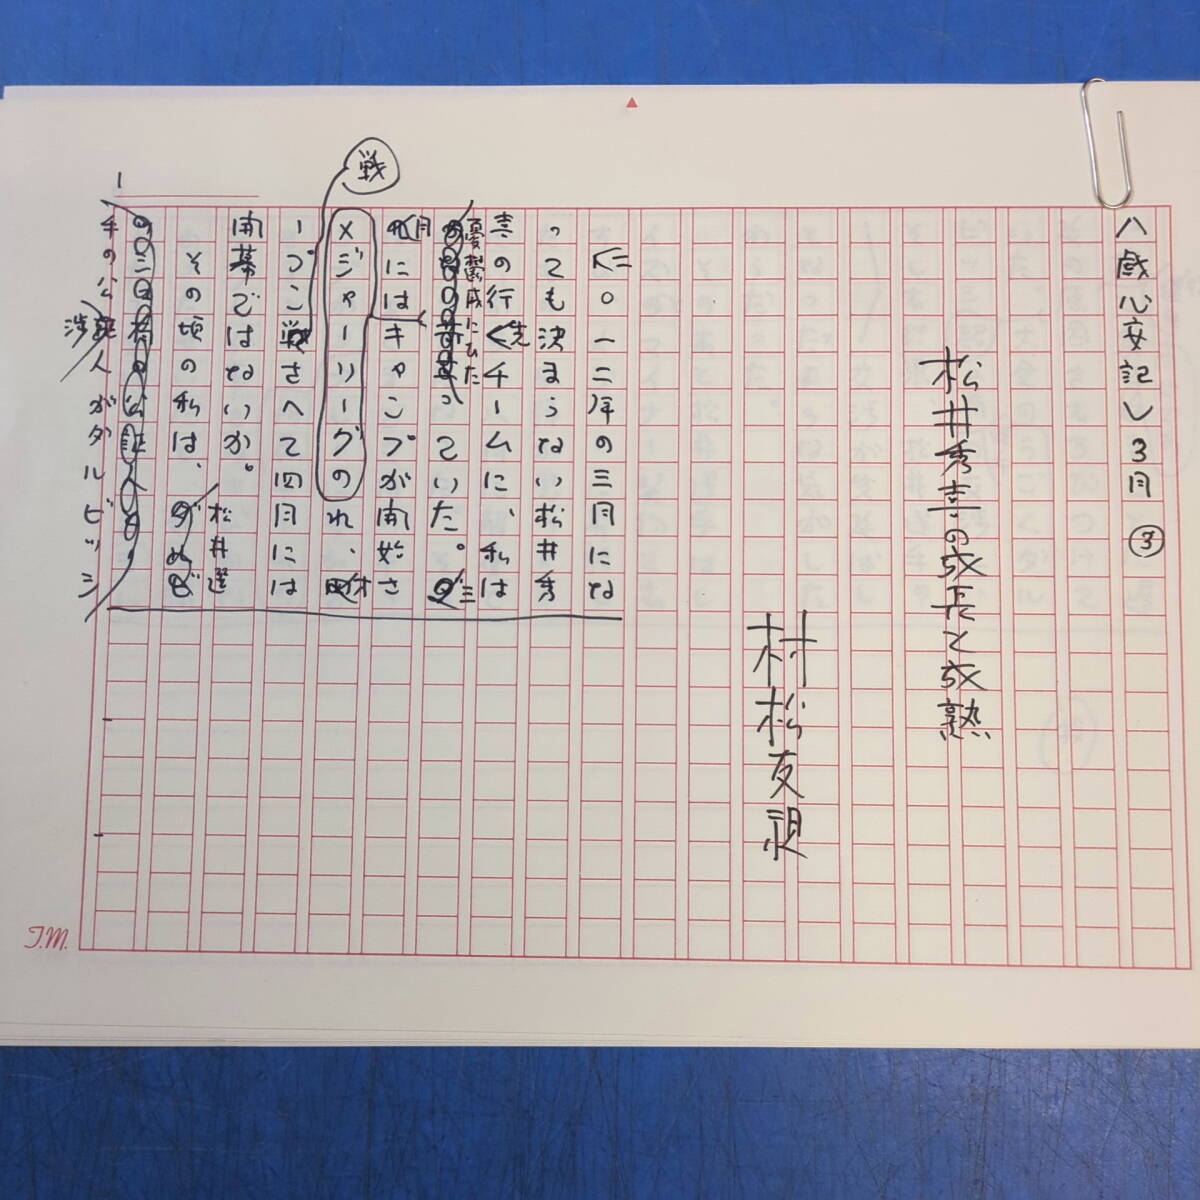 八歳心安記し3月③
松井秀喜の成長と成熟
村松友視
二〇一二年の三月にな
っても決まらない松井秀
喜の行く先チームに、私は
憂鬱感にひた
っていた。三
月にはキャンプが開始さ
れ、
メジャーリーグの
オ
ープン戦さへて四月には
戦
開幕ではないか。
その頃の私は、
松井選
手の
人がダルビッシ
渉
1
T.M.